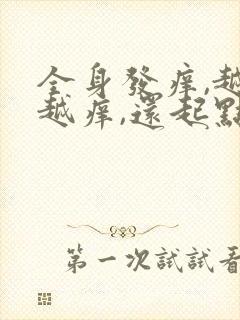 全身發癢,越
越癢,還起點
第一次試試看